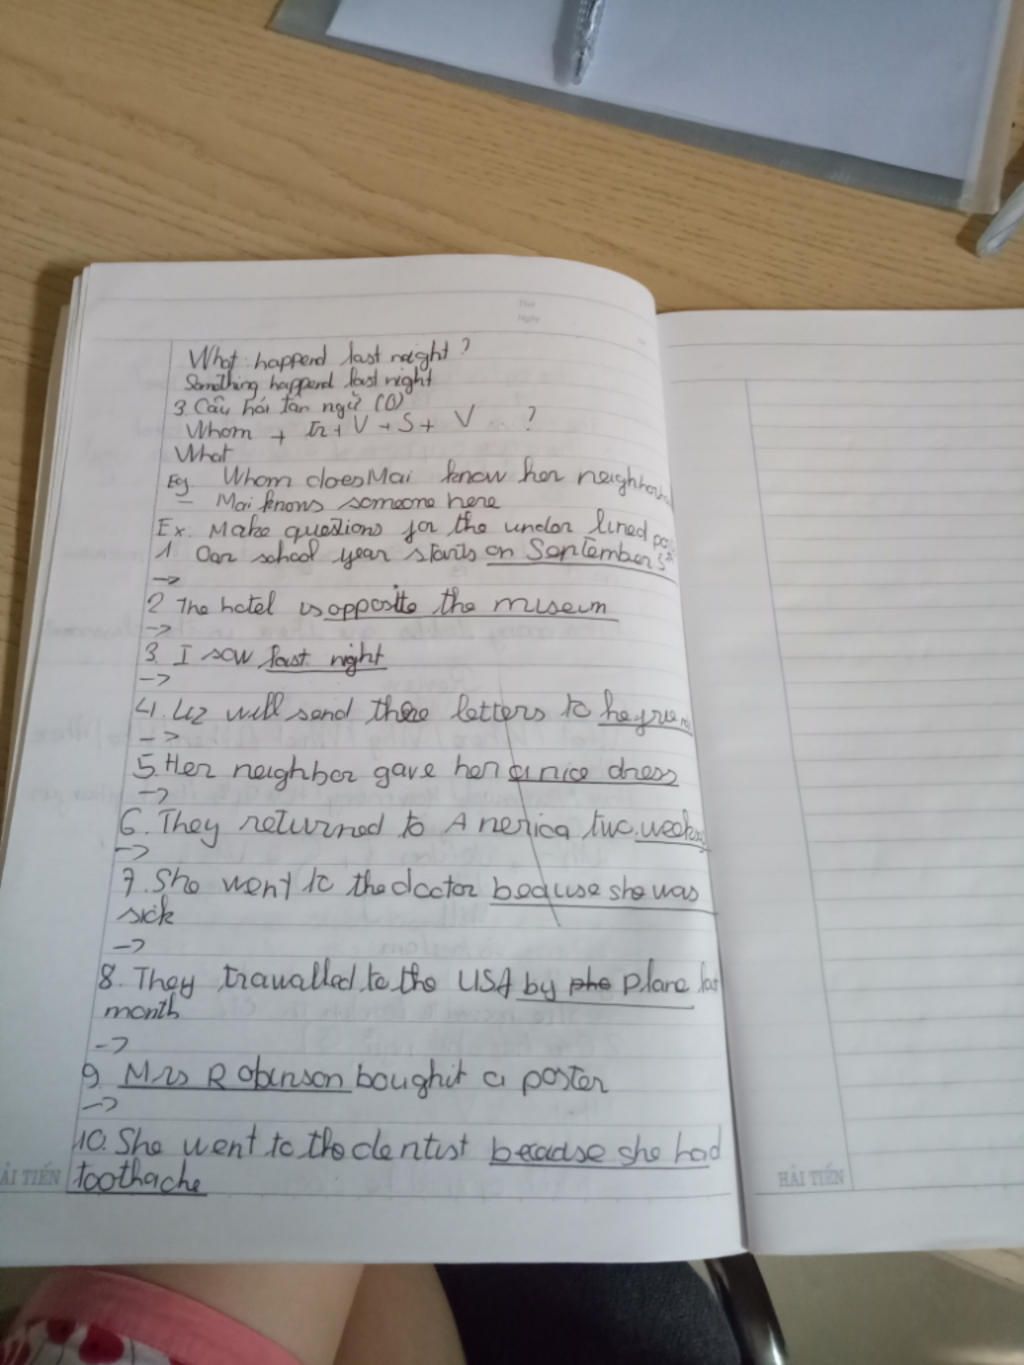 Thứ
Ngày
What happend last neight ?
Something happend last night
3. Câu hỏi tân ngữ (O)
Whom + Tr + V + S + V ?
What
Eg. Whom does Mai know her neighborho
- Mai knows someone here
Ex. Make questions for the under lined pa
1 Oar school year starts on September 5
->
2 The hotel is opposite the museum
->
3. I saw last night
->
4. Liz will send there letters to
->
5. Her neighbor gave her a nice dress
->
6. They returned to America two weeks
->
7. She went to the doctor because she was
sick
->
8. They travalled to the USA by plane las
month
->
9. Mrs Robinson boughit a poster
->
10. She went to the dentist because she had
toothache
ẢI TIẾN
HẢI TIẾN